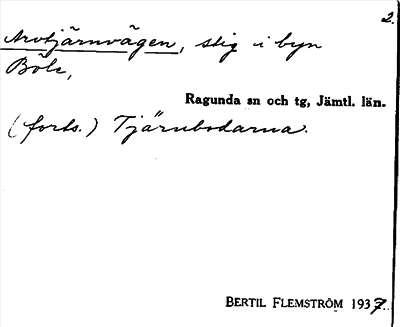 2.
Arvtjärnvägen, stig i byn
Böle,
Ragunda sn och tg, Jämtl. län.
(forts.) Tjärnbodarna.
BERTIL FLEMSTRÖM 1937.